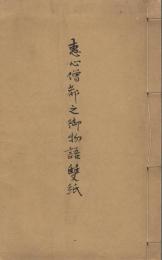 恵心僧都之御物語雙紙